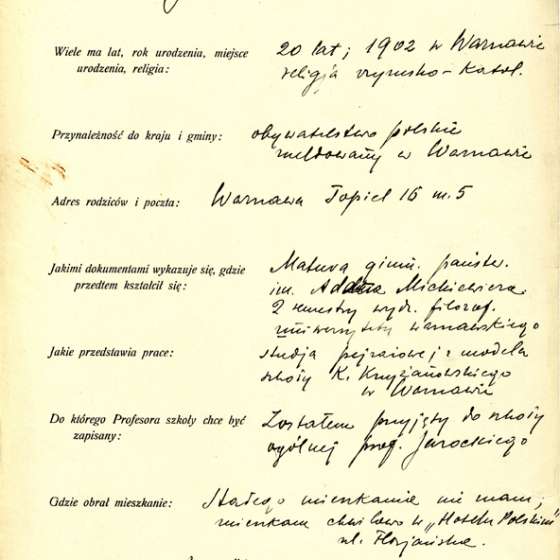 Wiele ma lat, rok urodzenia, miejsce
urodzenia, religia:
20 lat; 1902 w Warszawie
religja rzymsko-katol.
Przynależność do kraju i gminy:
obywatelstwo polskie
meldowany w Warszawie
Adres rodziców i poczta:
Warszawa Topiel 16 m. 5
Jakimi dokumentami wykazuje się, gdzie
przedtem kształcił się:
Matura gimn. państw.
im. Adama Mickiewicza.
2 semestry wydz. filozof.
uniwersytetu warszawskiego
Jakie przedstawia prace:
studja pejzażowe i z modela
szkoły K. Krzyżanowskiego
w Warszawie
Do którego Profesora szkoły chce być
zapisany:
Zostałem przyjęty do szkoły
ogólnej prof. Jarockiego
Gdzie obrał mieszkanie:
Stałego mieszkania nie mam;
mieszkam chwilowo w „Hotelu Polskim"
ul. Florjańska.